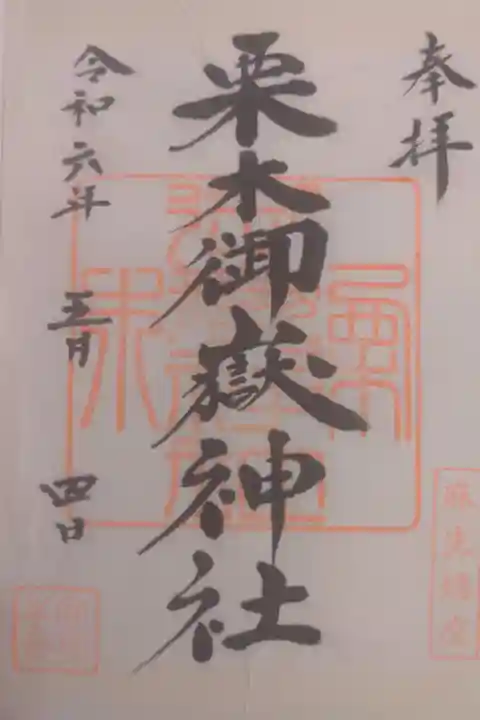 奉拝
栗木御嶽神社
令和六年 五月 四日